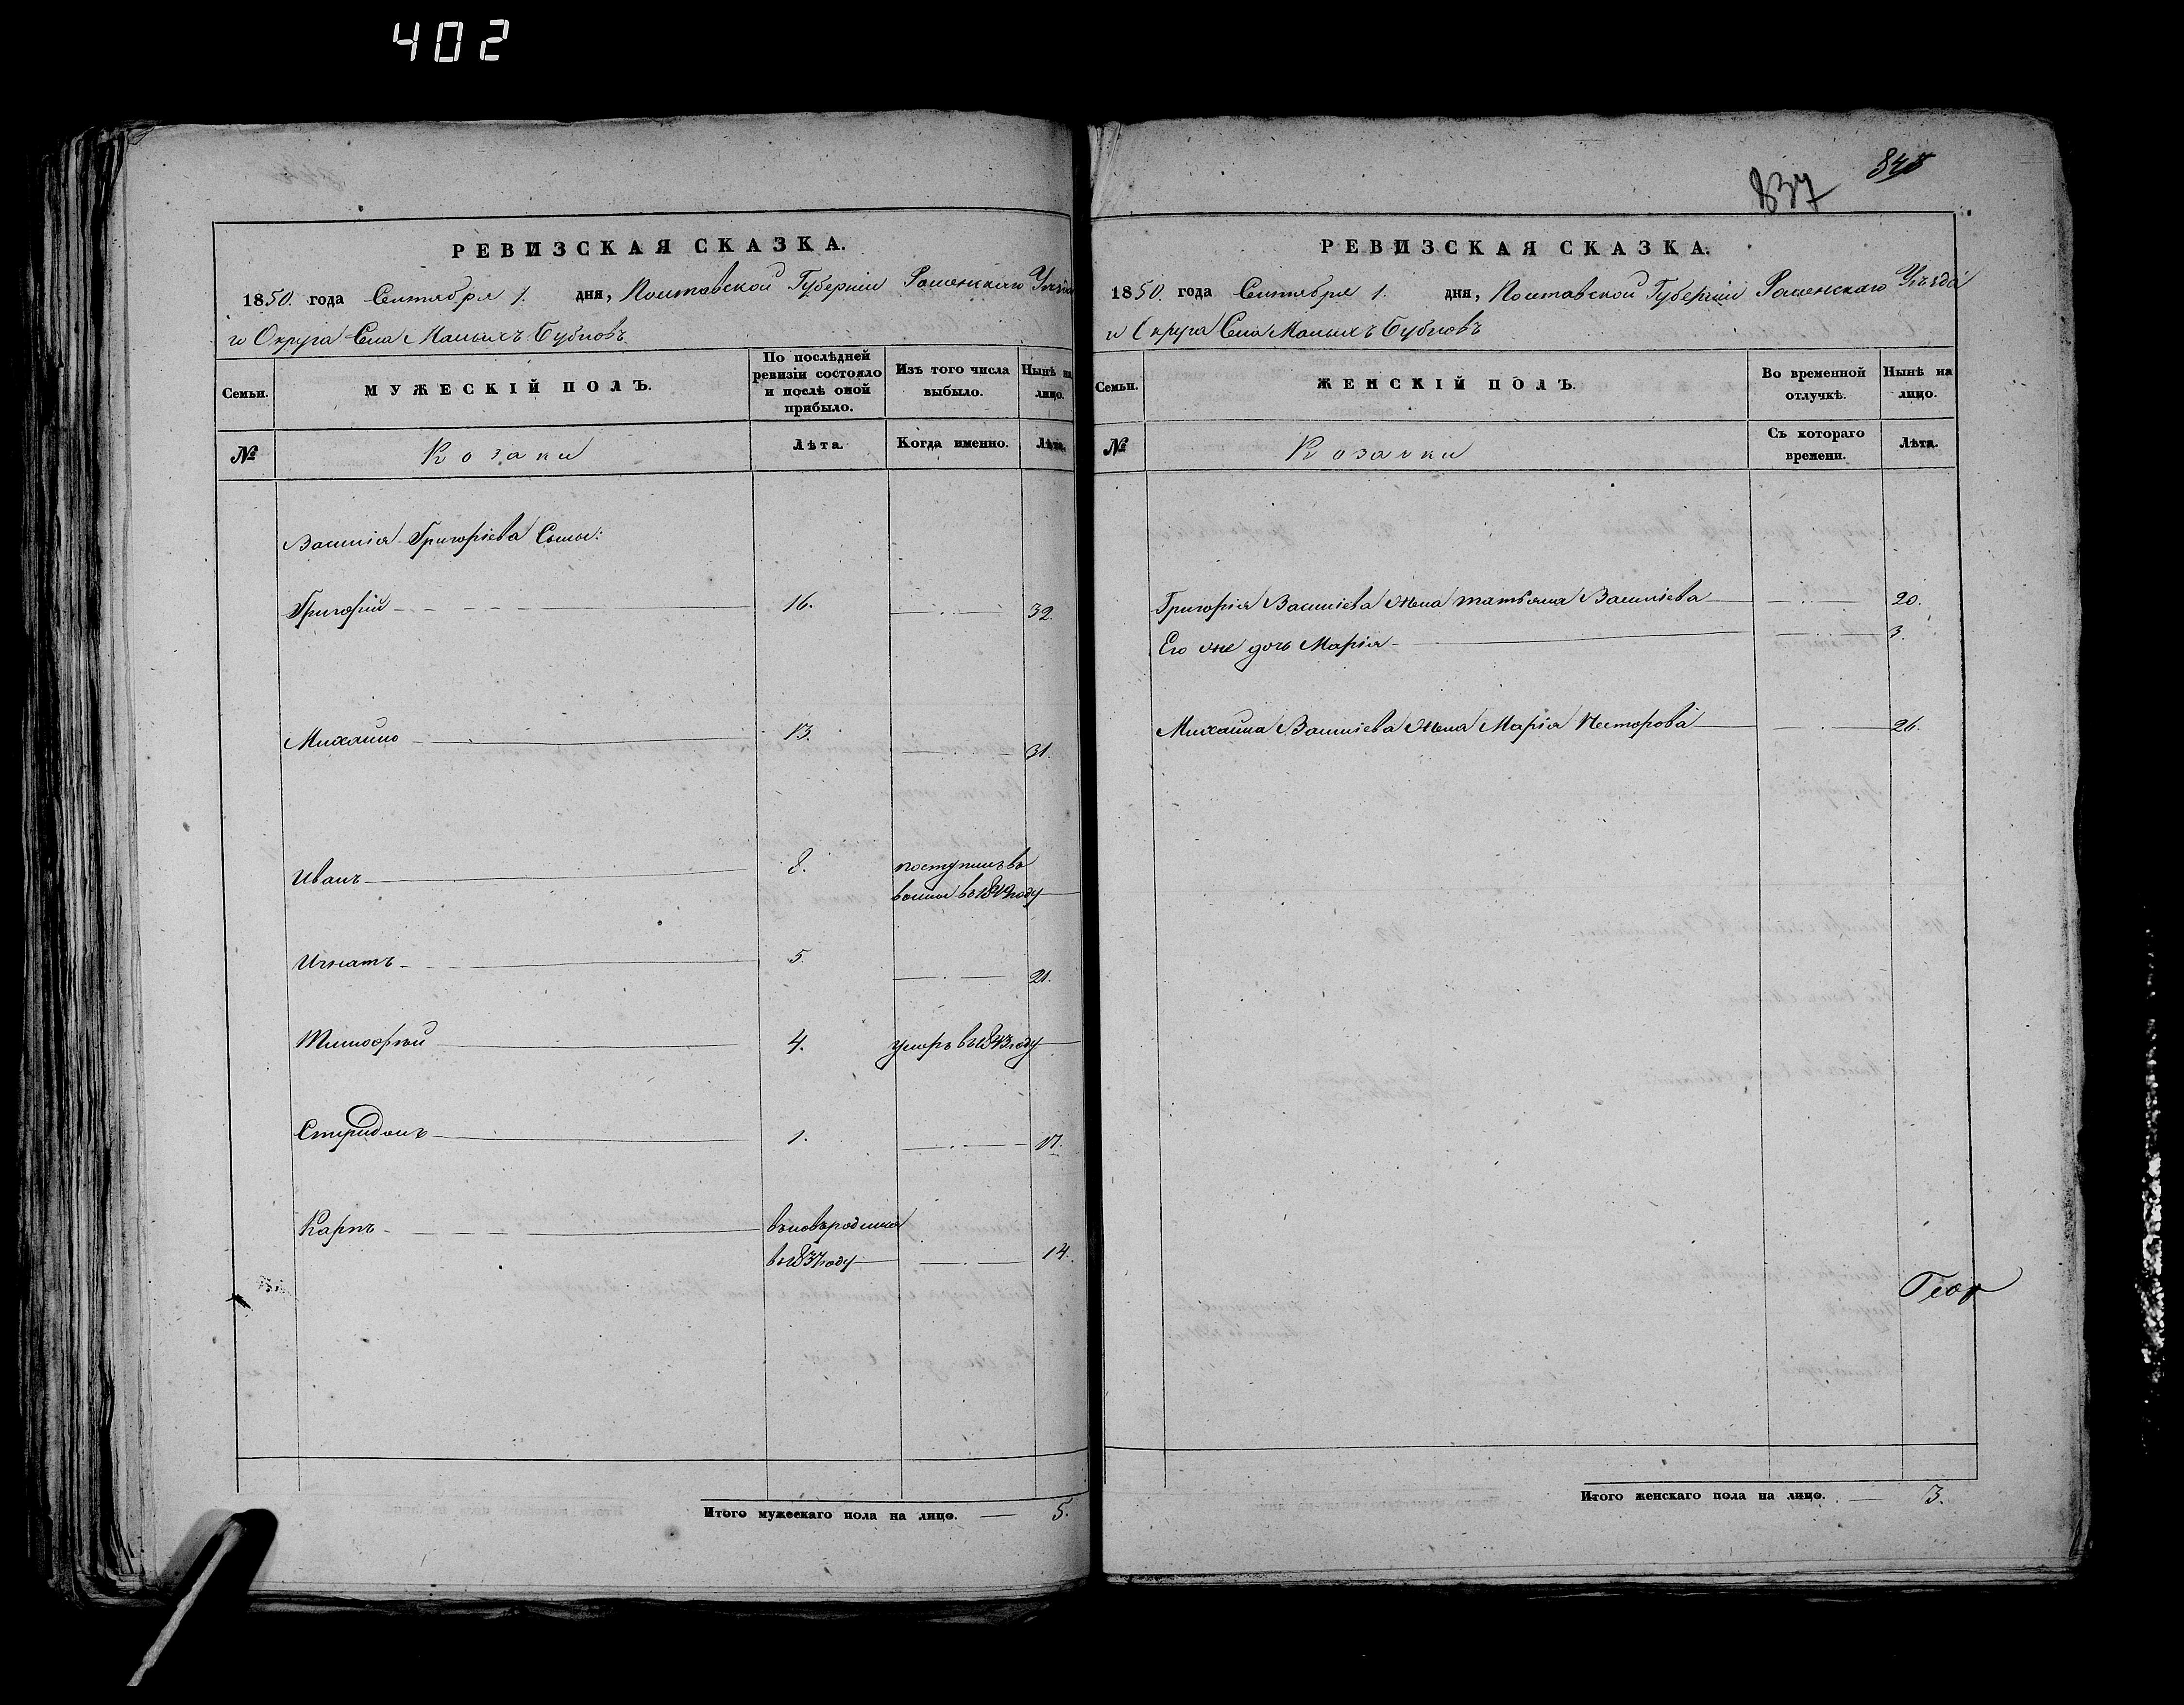 402
РЕВИЗСКАЯ СКАЗКА.
1850. года Сентября 1. дня, Полтавской Губерніи Роменскаго Уѣзда
и Округа Села Малыхъ Бубновъ
Семьи.
МУЖЕСКІЙ ПОЛЪ.
По послѣдней ревизіи состояло и послѣ оной прибыло.
Изъ того числа выбыло.
Нынѣ на лицо.
№
Козаки
Лѣта.
Когда именно.
Лѣта.
Василія Григоріева Сыны:
Григорій 16. 32.
Михайло 13. 31.
Иванъ 8. поступилъ въ
въ 1849 году
Игнатъ 5. 21.
Тимофѣй 4. умеръ въ 1843 году
Спиридонъ 1. 17.
Карпъ вновьродился
въ 1837 году 14.
Итого мужескаго пола на лицо. 5.
837
РЕВИЗСКАЯ СКАЗКА.
1850. года Сентября 1. дня, Полтавской Губерніи Роменскаго Уѣзда
и Округа Села Малыхъ Бубновъ
Семьи.
ЖЕНСКІЙ ПОЛЪ.
Во временной отлучкѣ.
Нынѣ на лицо.
№
Козачки
Съ котораго времени.
Лѣта.
Григорія Василіева Жена Татьяна Василіева 20.
Его же дочь Марія 3.
Михайла Василіева Жена Марія Несторова 26.
Итого женскаго пола на лицо. 3.